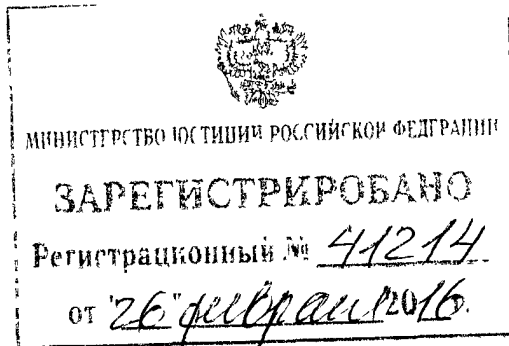 МИНИСТЕРСТВО ЮСТИЦИИ РОССИЙСКОЙ ФЕДЕРАЦИИ
ЗАРЕГИСТРИРОВАНО
Регистрационный № 41214
от "26" февраля 2016.